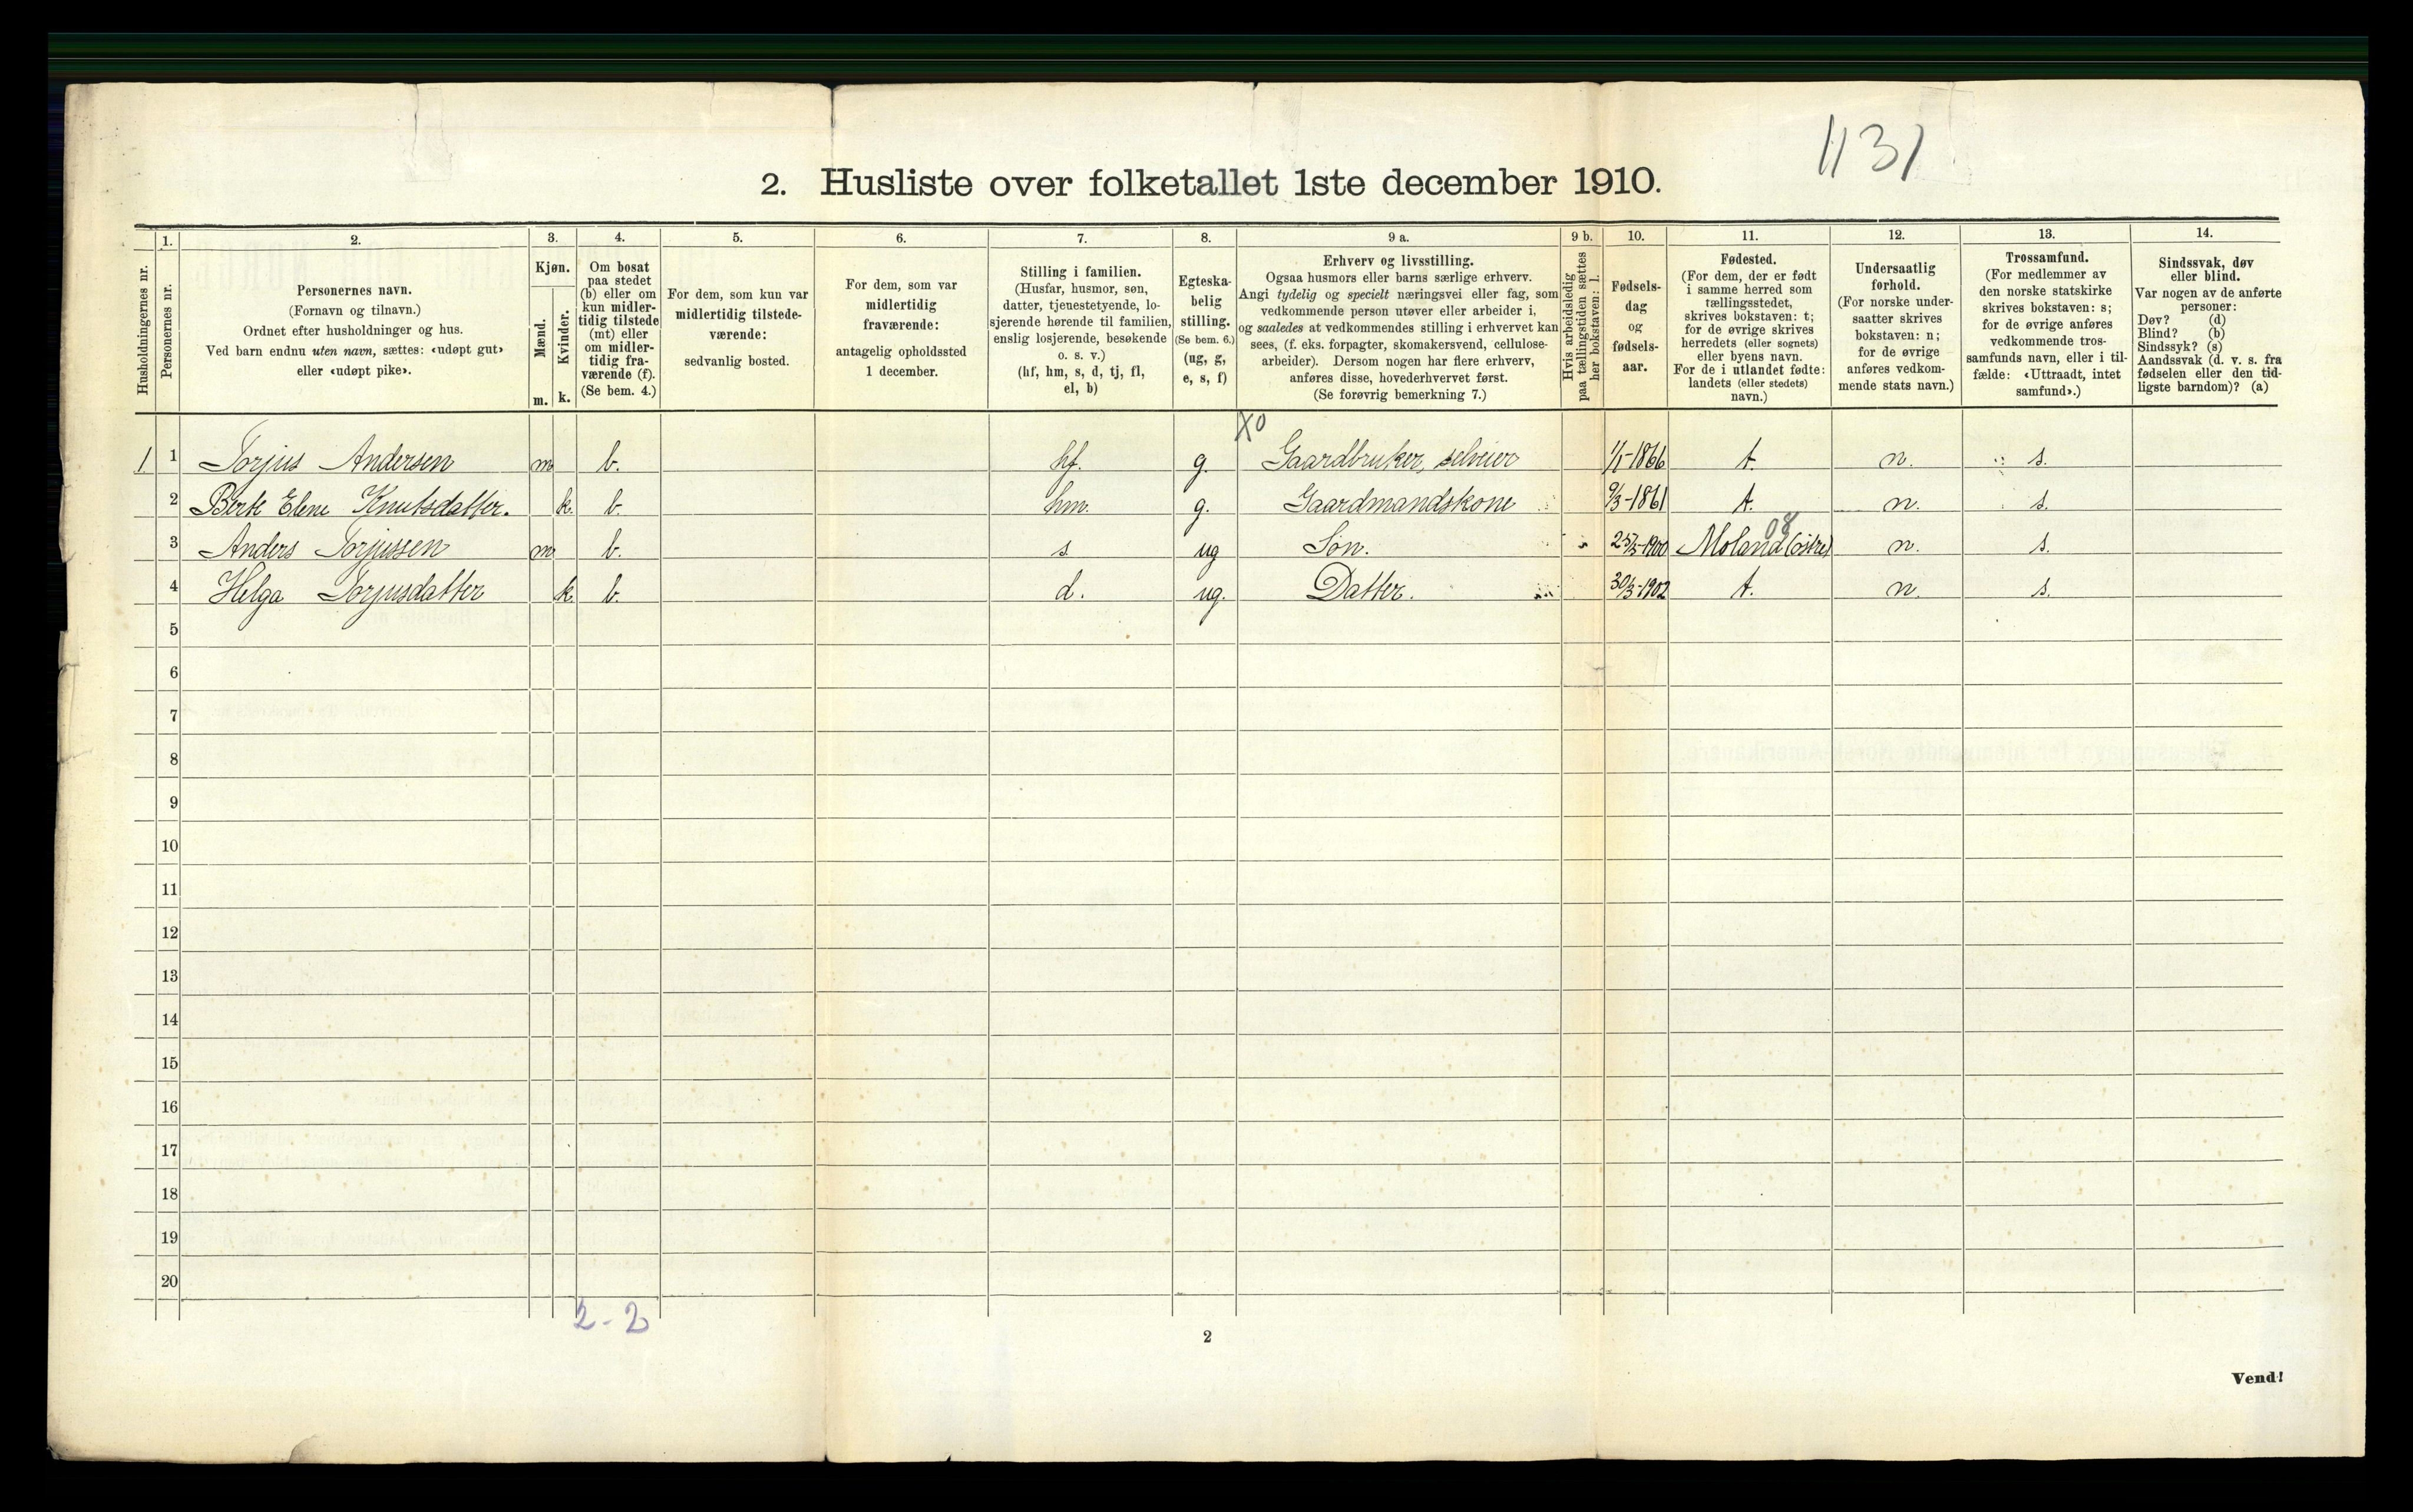 1131
2. Husliste over folketallet 1ste december 1910.
Husholdningernes nr.
1.
Personernes nr.
2.
Personernes navn.
(Fornavn og tilnavn.)
Ordnet efter husholdninger og hus.
Ved barn endnu uten navn, sættes: «udøpt gut»
eller «udøpt pike».
3.
Kjøn.
Mænd.
Kvinder.
m. k.
4.
Om bosat
paa stedet
(b) eller om
kun midler-
tidig tilstede
(mt) eller
om midler-
tidig fra-
værende (f).
(Se bem. 4.)
5.
For dem, som kun var
midlertidig tilstede-
værende:
sedvanlig bosted.
6.
For dem, som var
midlertidig
fraværende:
antagelig opholdssted
1 december.
7.
Stilling i familien.
(Husfar, husmor, søn,
datter, tjenestetyende, lo-
sjerende hørende til familien,
enslig losjerende, besøkende
o. s. v.)
(hf, hm, s, d, tj, fl,
el, b)
8.
Egteska-
belig
stilling.
(Se bem. 6.)
(ug, g,
e, s, f)
9 a.
Erhverv og livsstilling.
Ogsaa husmors eller barns særlige erhverv.
Angi tydelig og specielt næringsvei eller fag, som
vedkommende person utøver eller arbeider i,
og saaledes at vedkommendes stilling i erhvervet kan
sees, (f. eks. forpagter, skomakersvend, cellulose-
arbeider). Dersom nogen har flere erhverv,
anføres disse, hovederhvervet først.
(Se forøvrig bemerkning 7.)
9 b.
Hvis arbeidsledig
paa tællingstiden sættes
her bokstaven: l.
10.
Fødsels-
dag
og
fødsels-
aar.
11.
Fødested.
(For dem, der er født
i samme herred som
tællingsstedet,
skrives bokstaven: t;
for de øvrige skrives
herredets (eller sognets)
eller byens navn.
For de i utlandet fødte:
landets (eller stedets)
navn.)
12.
Undersaatlig
forhold.
(For norske under-
saatter skrives
bokstaven: n;
for de øvrige
anføres vedkom-
mende stats navn.)
13.
Trossamfund.
(For medlemmer av
den norske statskirke
skrives bokstaven: s;
for de øvrige anføres
vedkommende tros-
samfunds navn, eller i til-
fælde: «Uttraadt, intet
samfund».)
14.
Sindssvak, døv
eller blind.
Var nogen av de anførte
personer:
Døv? (d)
Blind? (b)
Sindssyk? (s)
Aandssvak (d. v. s. fra
fødselen eller den tid-
ligste barndom)? (a)
X0
1 1 Torjus Andersen m b. hf. g. Gaardbruker, selveier 1/1-1866 t. n. s.
2 Berte Elene Knutsdatter. k. b. hm. g. Gaardmandskone 9/3-1861 t. n. s.
08
3 Anders Torjussen m b. s. ug Søn. 25/5-1900 Moland (østre) n. s.
4 Helga Torjusdatter k b. d. ug. Datter. 30/3-1902 t. n. s.
5
6
7
8
9
10
11
12
13
14
15
16
17
18
19
20
2-2
2
Vend!